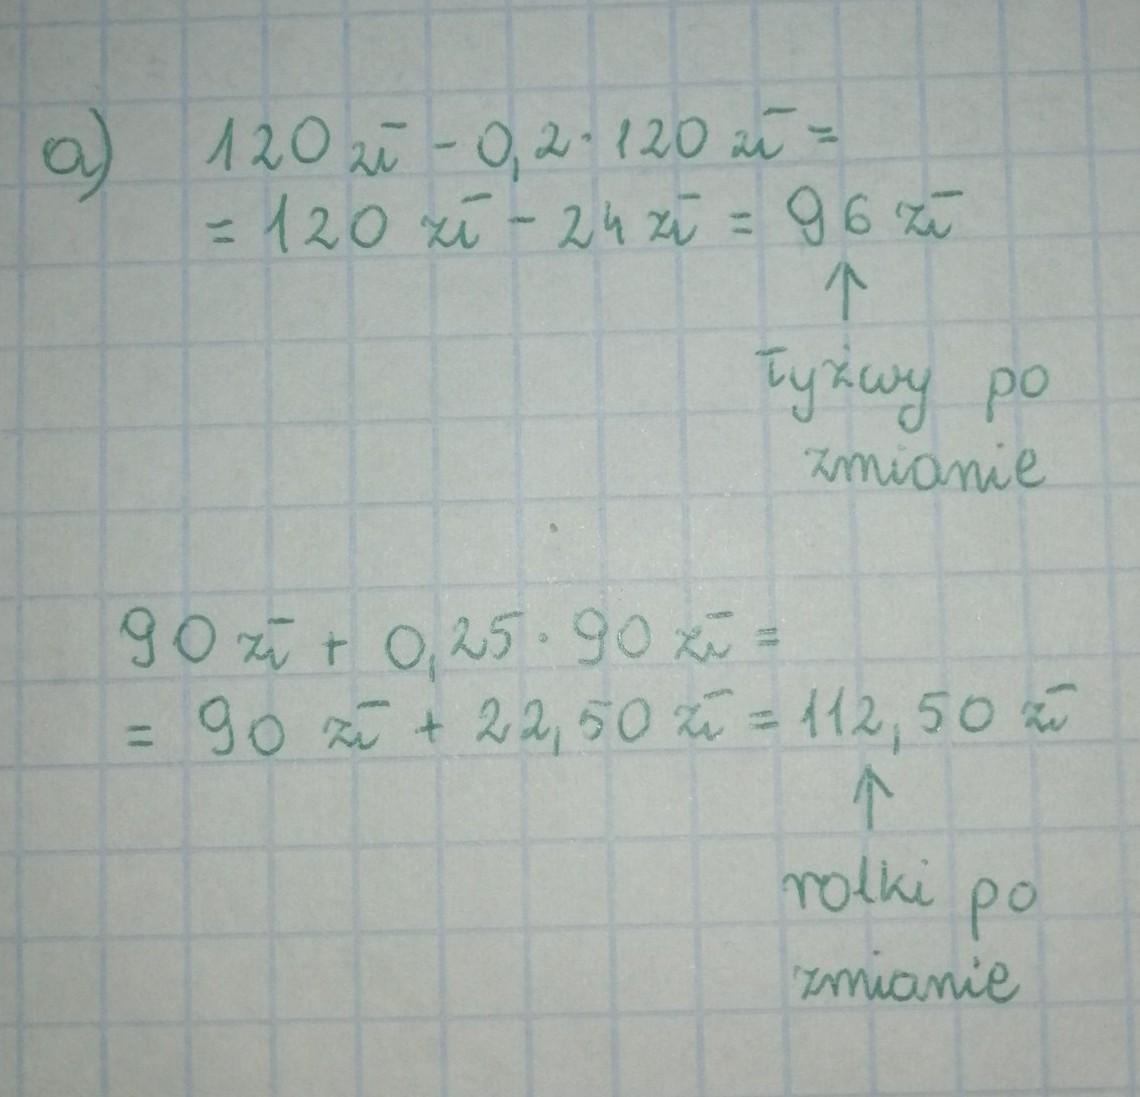 a) 120 zł - 0,2 · 120 zł =
= 120 zł - 24 zł = 96 zł
↑
łyżwy po
zmianie
90 zł + 0,25 · 90 zł =
= 90 zł + 22,50 zł = 112,50 zł
↑
rolki po
zmianie